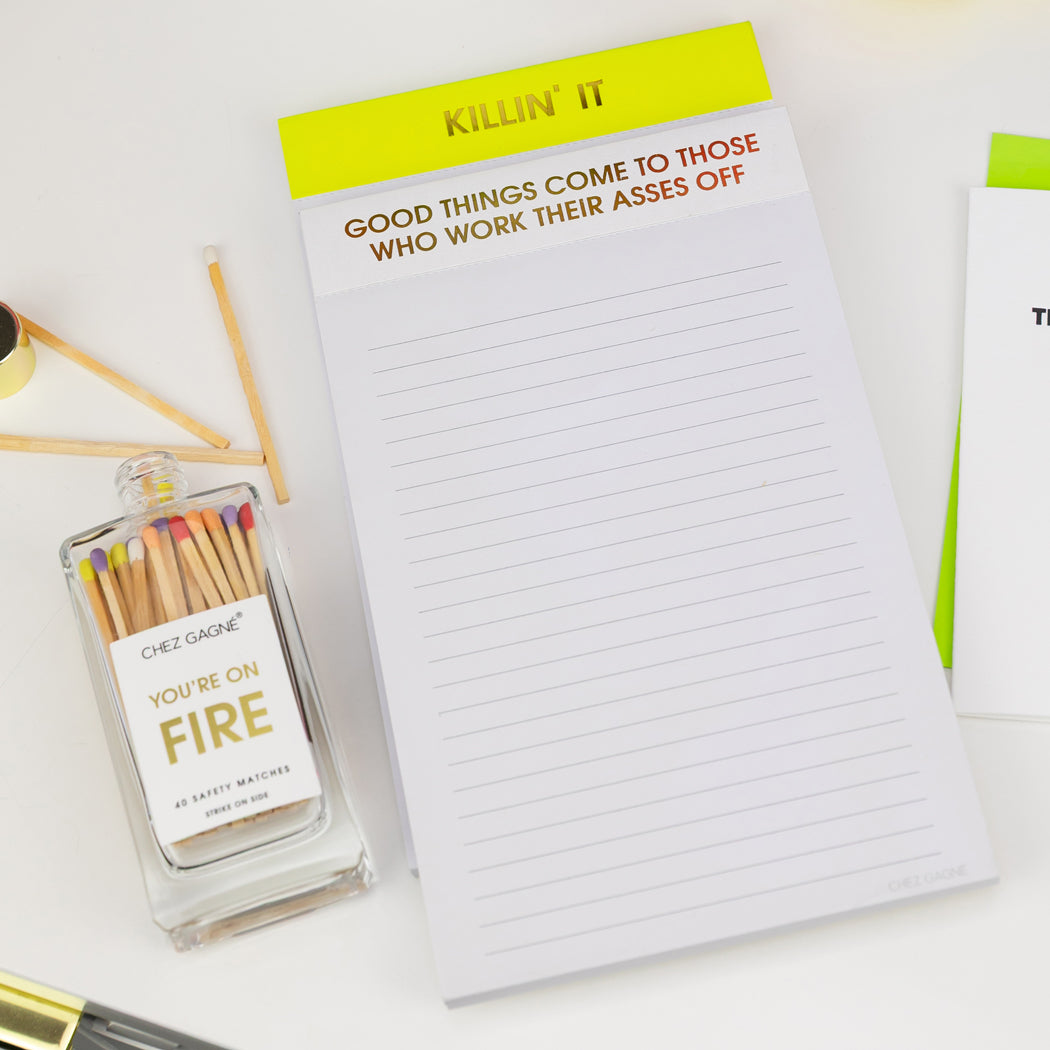 KILLIN' IT
GOOD THINGS COME TO THOSE
WHO WORK THEIR ASSES OFF
CHEZ GAGNÉ
CHEZ GAGNÉ®
YOU'RE ON
FIRE
40 SAFETY MATCHES
STRIKE ON SIDE